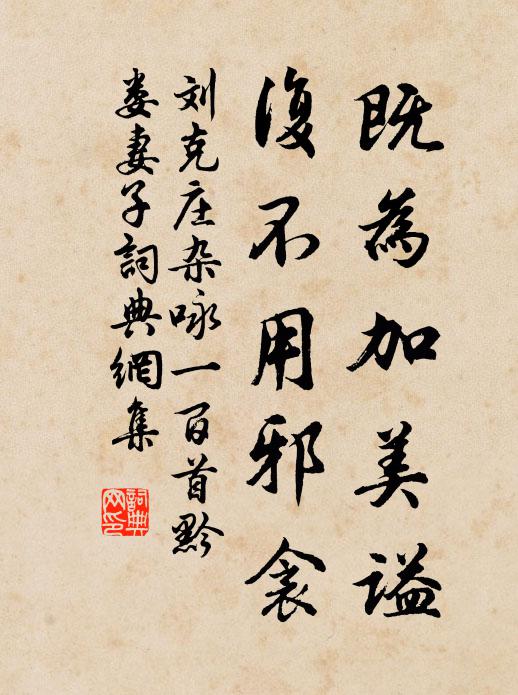 既為加美谥
復不用邪衾
刘克庄杂咏一百首黔
娄妻子詞典網集
詞典网印